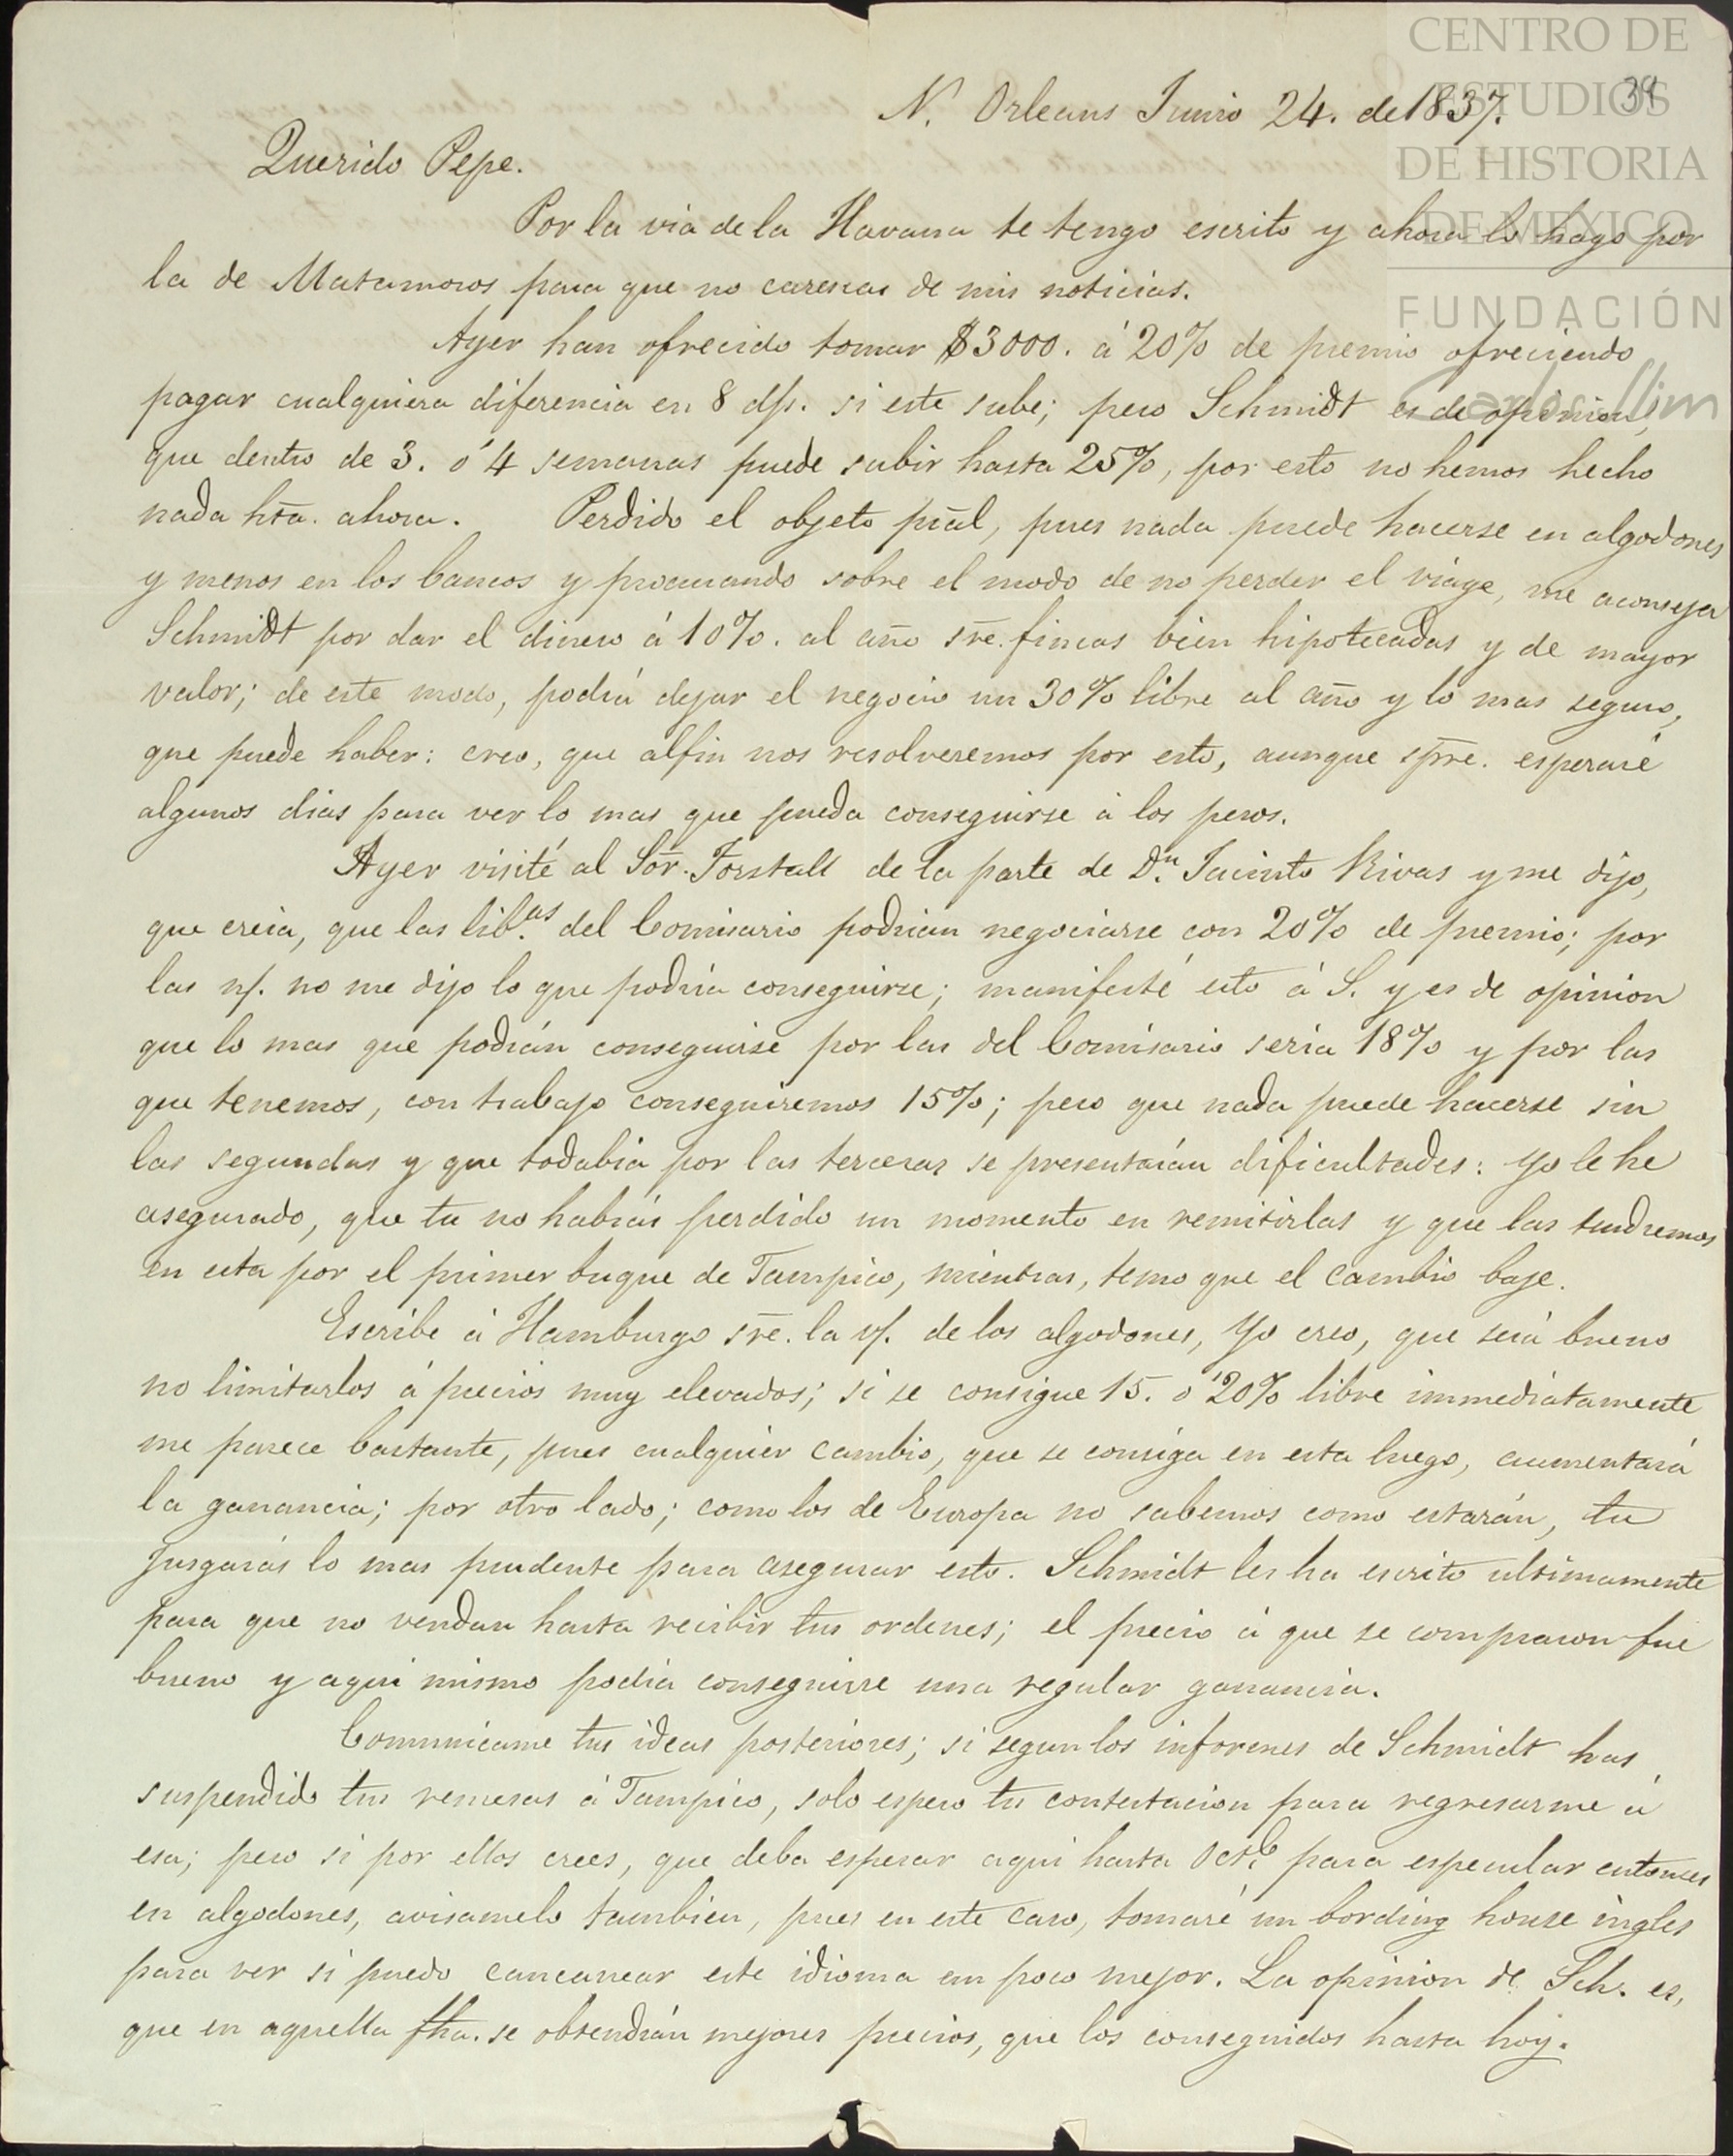 CENTRO DE
ESTUDIOS
DE HISTORIA
DE MEXICO
FUNDACIÓN
Carlos Slim
39
N. Orleans Junio 24. de 1837.
Querido Pepe.
Por la via de la Havana te tengo escrito y ahora lo hago por
la de Matamoros para que no carescas de mis noticias.
Ayer han ofrecido tomar $3000. á 20% de premio ofreciendo
pagar cualquiera diferencia en 8 d/s. si este sube; pero Schmidt es de opinion,
que dentro de 3. ó 4 semanas puede subir hasta 25%, por esto no hemos hecho
nada hta. ahora. Perdido el objeto pral, pues nada puede hacerse en algodones
y menos en los bancos y procurando sobre el modo de no perder el viage, me aconseja
Schmidt por dar el dinero á 10%. al año sre. fincas bien hipotecadas y de mayor
valor; de este modo, podrá dejar el negocio un 30% libre al año y lo mas seguro,
que puede haber: creo, que alfin nos resolveremos por esto, aunque spre. esperaré
algunos dias para ver lo mas que pueda conseguirse á los pesos.
Ayer visité al Sor. Forstall de la parte de Dn. Jacinto Rivas y me dijo,
que creia, que las lib.as del Comisario podrian negociarse con 20% de premio; por
las n/. no me dijo lo que podria conseguirse; manifesté esto á S. y es de opinion
que lo mas que podrán conseguirse por las del Comisario seria 18% y por las
que tenemos, con trabajo conseguiremos 15%; pero que nada puede hacerse sin
las segundas y que todabia por las terceras se presentarán dificultades: yo le he
asegurado, que tu no habrás perdido un momento en remitirlas y que las tendremos
en esta por el primer buque de Tampico, mientras, temo que el cambio baje.
Escribe á Hamburgo sre. la v/. de los algodones, Yo creo, que será bueno
no limitarlos á precios muy elevados; si se consigue 15. ó 20% libre immediatamente
me parece bastante, pues cualquier cambio, que se consiga en esta luego, aumentará
la ganancia; por otro lado; como los de Europa no sabemos como estarán, tu
jusgarás lo mas prudente para asegurar esto. Schmidt les ha escrito ultimamente
para que no vendan hasta recibir tus ordenes; el precio á que se compraron fue
bueno y aqui mismo podia conseguirse una regular ganancia.
Comunicame tus ideas posteriores; si segun los informes de Schmidt has
suspendido tus remesas á Tampico, solo espero tu contestacion para regresarme á
esa; pero si por ellos crees, que deba esperar aqui hasta Octe. para especular entonces
en algodones, avisamelo tambien, pues en este caso, tomaré un bording house ingles
para ver si puedo cancanear este idioma un poco mejor. La opinion de Sch. es,
que en aquella fha. se obtendrán mejores precios, que los conseguidos hasta hoy.